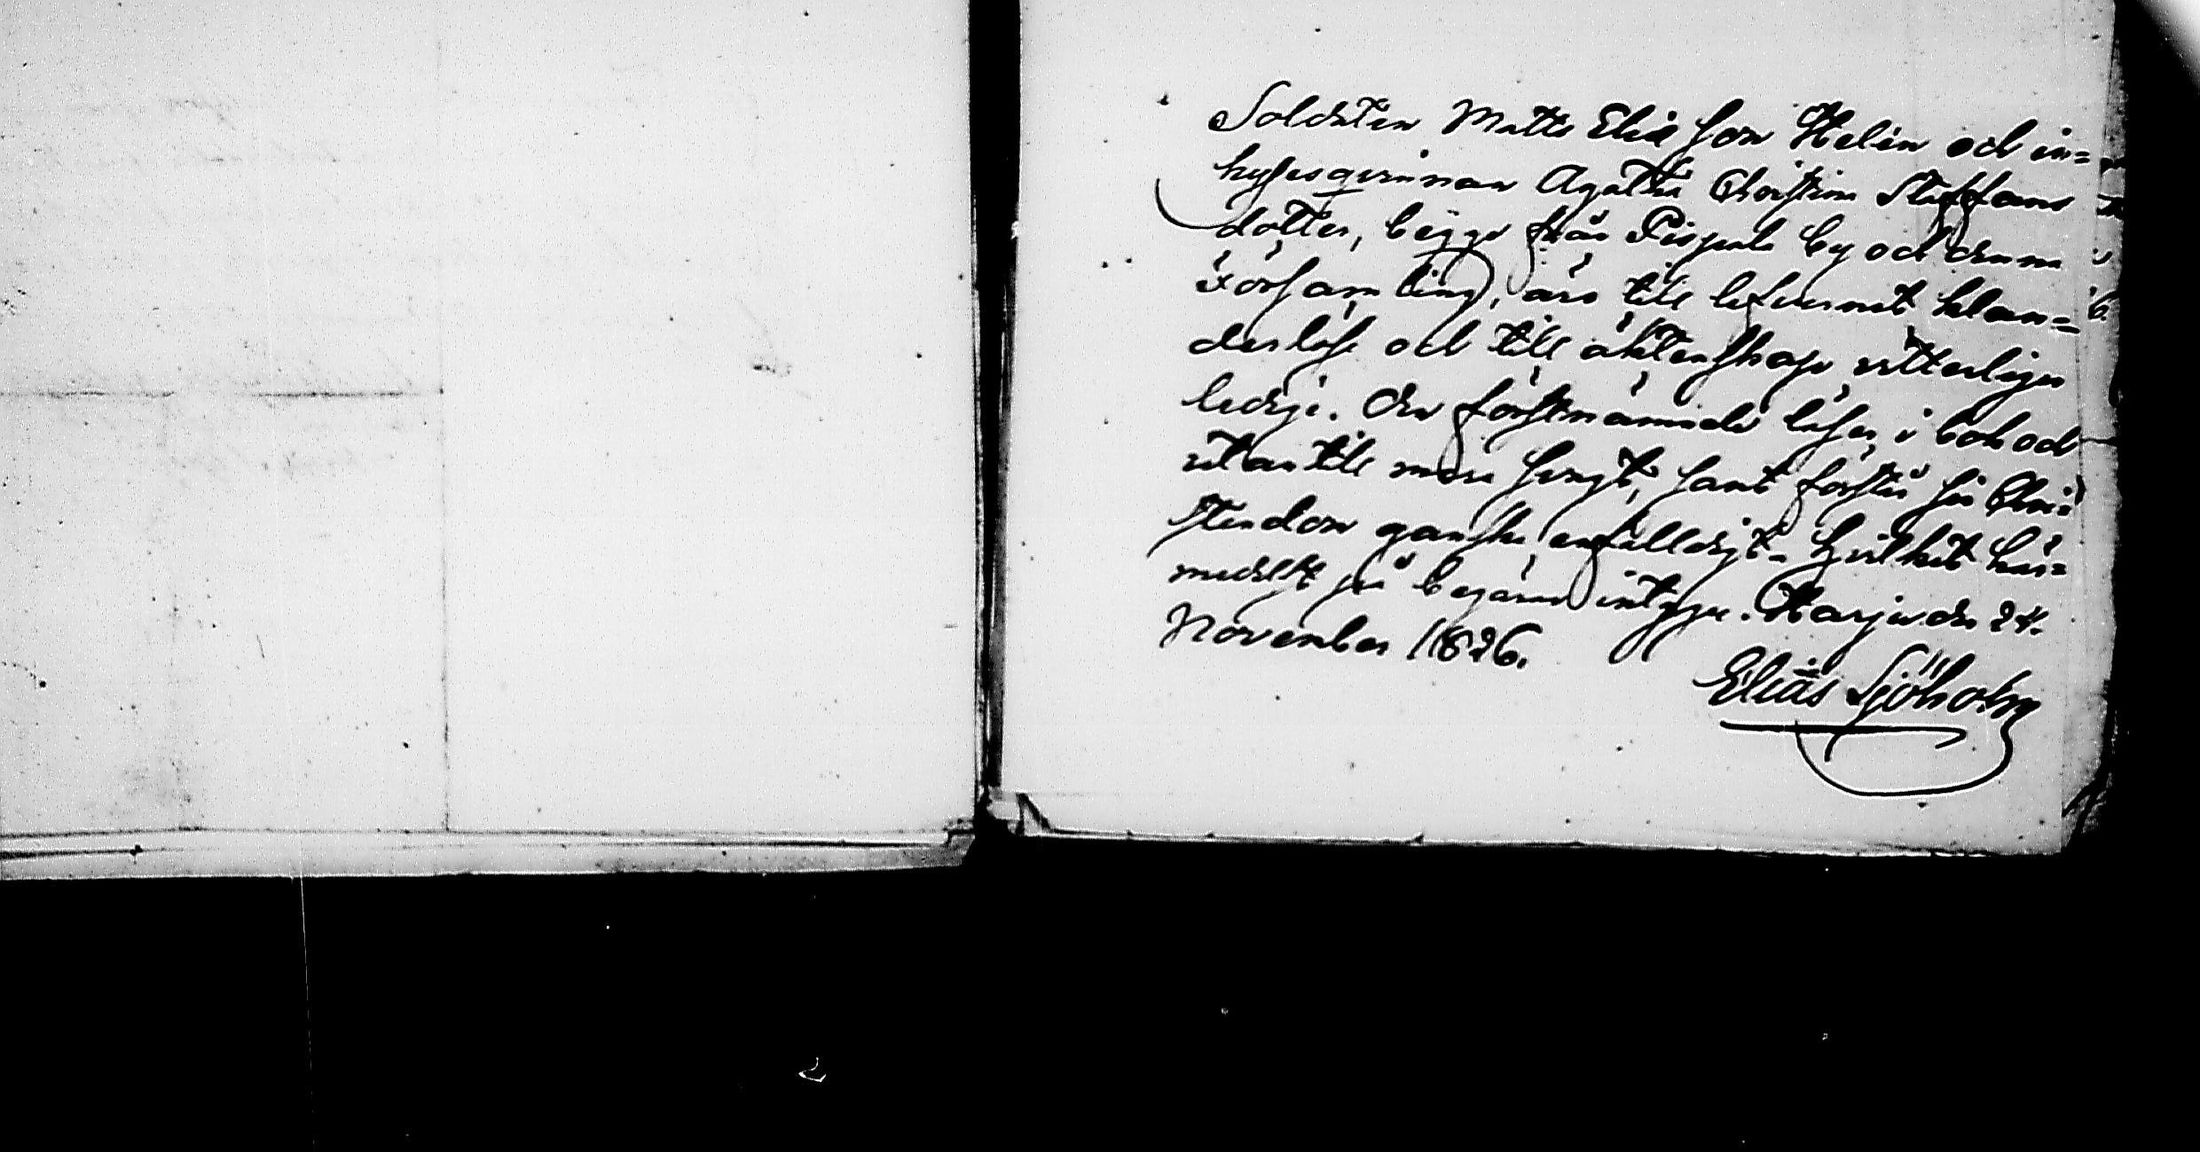 Soldaten Matts Eliæson Helin och in=
hysesqvinnan Agatha Christina Staffans
dotter, begge från Pispala by och denna
Församling, äro till lefvernet klan=
derlöse och till äktenskaps rätteligen
ledige. Den förstnämnde läser i bok och
utantill mera svagt, samt förstår sin Chri=
stendom ganska enfalldigt. Hvilket här=
medelst på begäran intygar. Harju den 24.
November 1826.
Elias Sjöholm